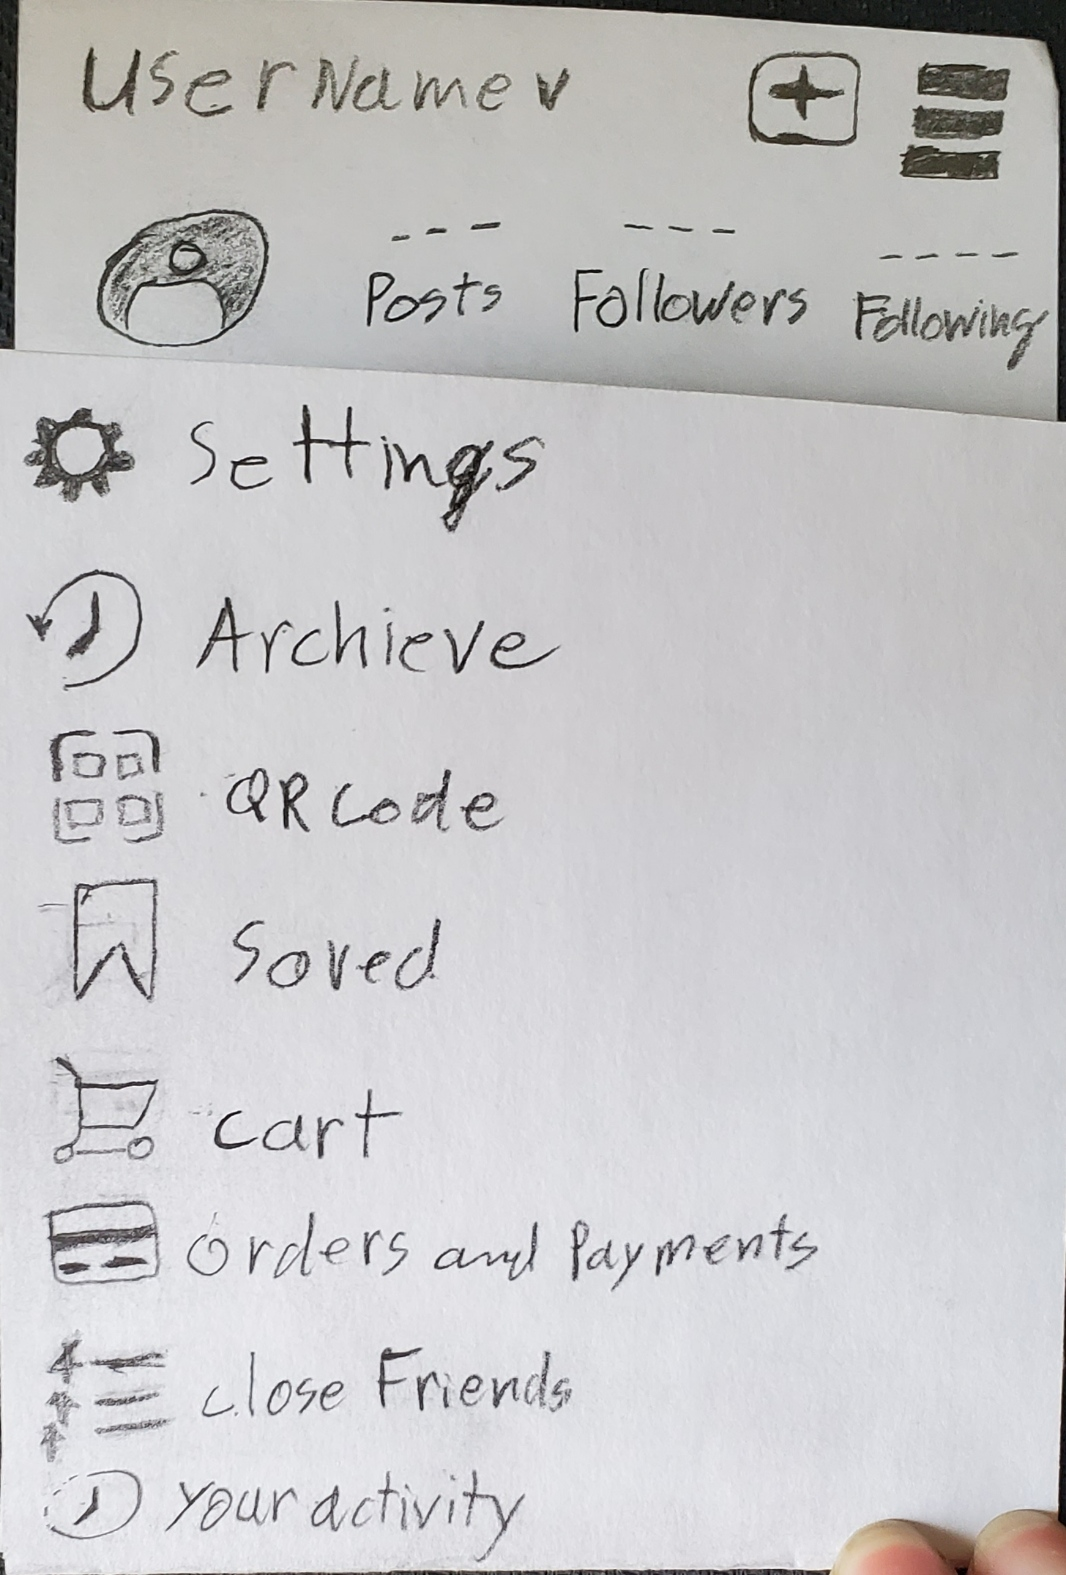 UserName v
--- --- ----
Posts Followers Following
Settings
Archieve
QR code
Soved
cart
Orders and Payments
close Friends
Your activity